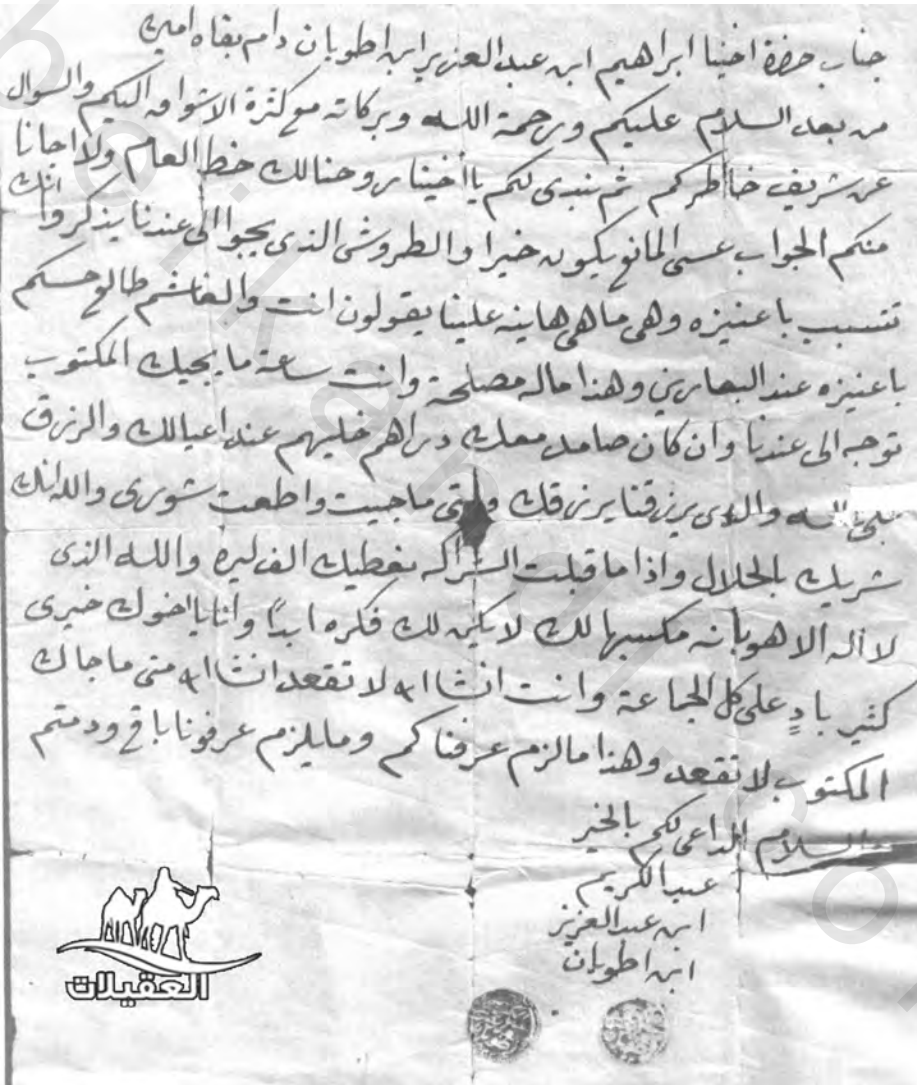 جناب حضرة اخينا ابراهيم ابن عبد العزيز ابن اطوبان دام بقاه امين
من بعد السلام عليكم ورحمة الله وبركاته مع كثرة الاشواق اليكم والسوال
عن شريف خاطركم ثم نبدى لكم يا اخينا من وحنا لك خط العام ولا اجانا
منكم الجواب عسى المانع يكون خيرا والطروش الذى يجوا الى عندنا يذكروا انك
تتسبب باعنيزه وهى ماهى هاينه علينا يقولون انت والغاشم طالع حسكم
باعنيزه عند البهارين وهذا ماله مصلحة وانت ساعة ما يجيك المكتوب
توجه الى عندنا وان كان صامد معك دراهم خليهم عند اعيالك والرزق
على الله والذى يرزقنا يرزقك ومتى ما جيت واطعت شورى والله انك
شريك بالحلال واذا ما قبلت الشراكه نعطيك الف ليره والله الذى
لا اله الا هو بانه مكسبها لك لا يكن لك فكره ابدًا وانا يا اخوك خيرى
كثير بادٍ على كل الجماعة وانت انشا الله لا تقعد انشا الله متى ما جاك
المكتوب لا تقعد وهذا مالزم عرفناكم وما يلزم عرفونا باقى ودمتم
والسلام الداعى لكم بالخير
عبد الكريم
ابن عبد العزيز
ابن اطوبان
العقيلات